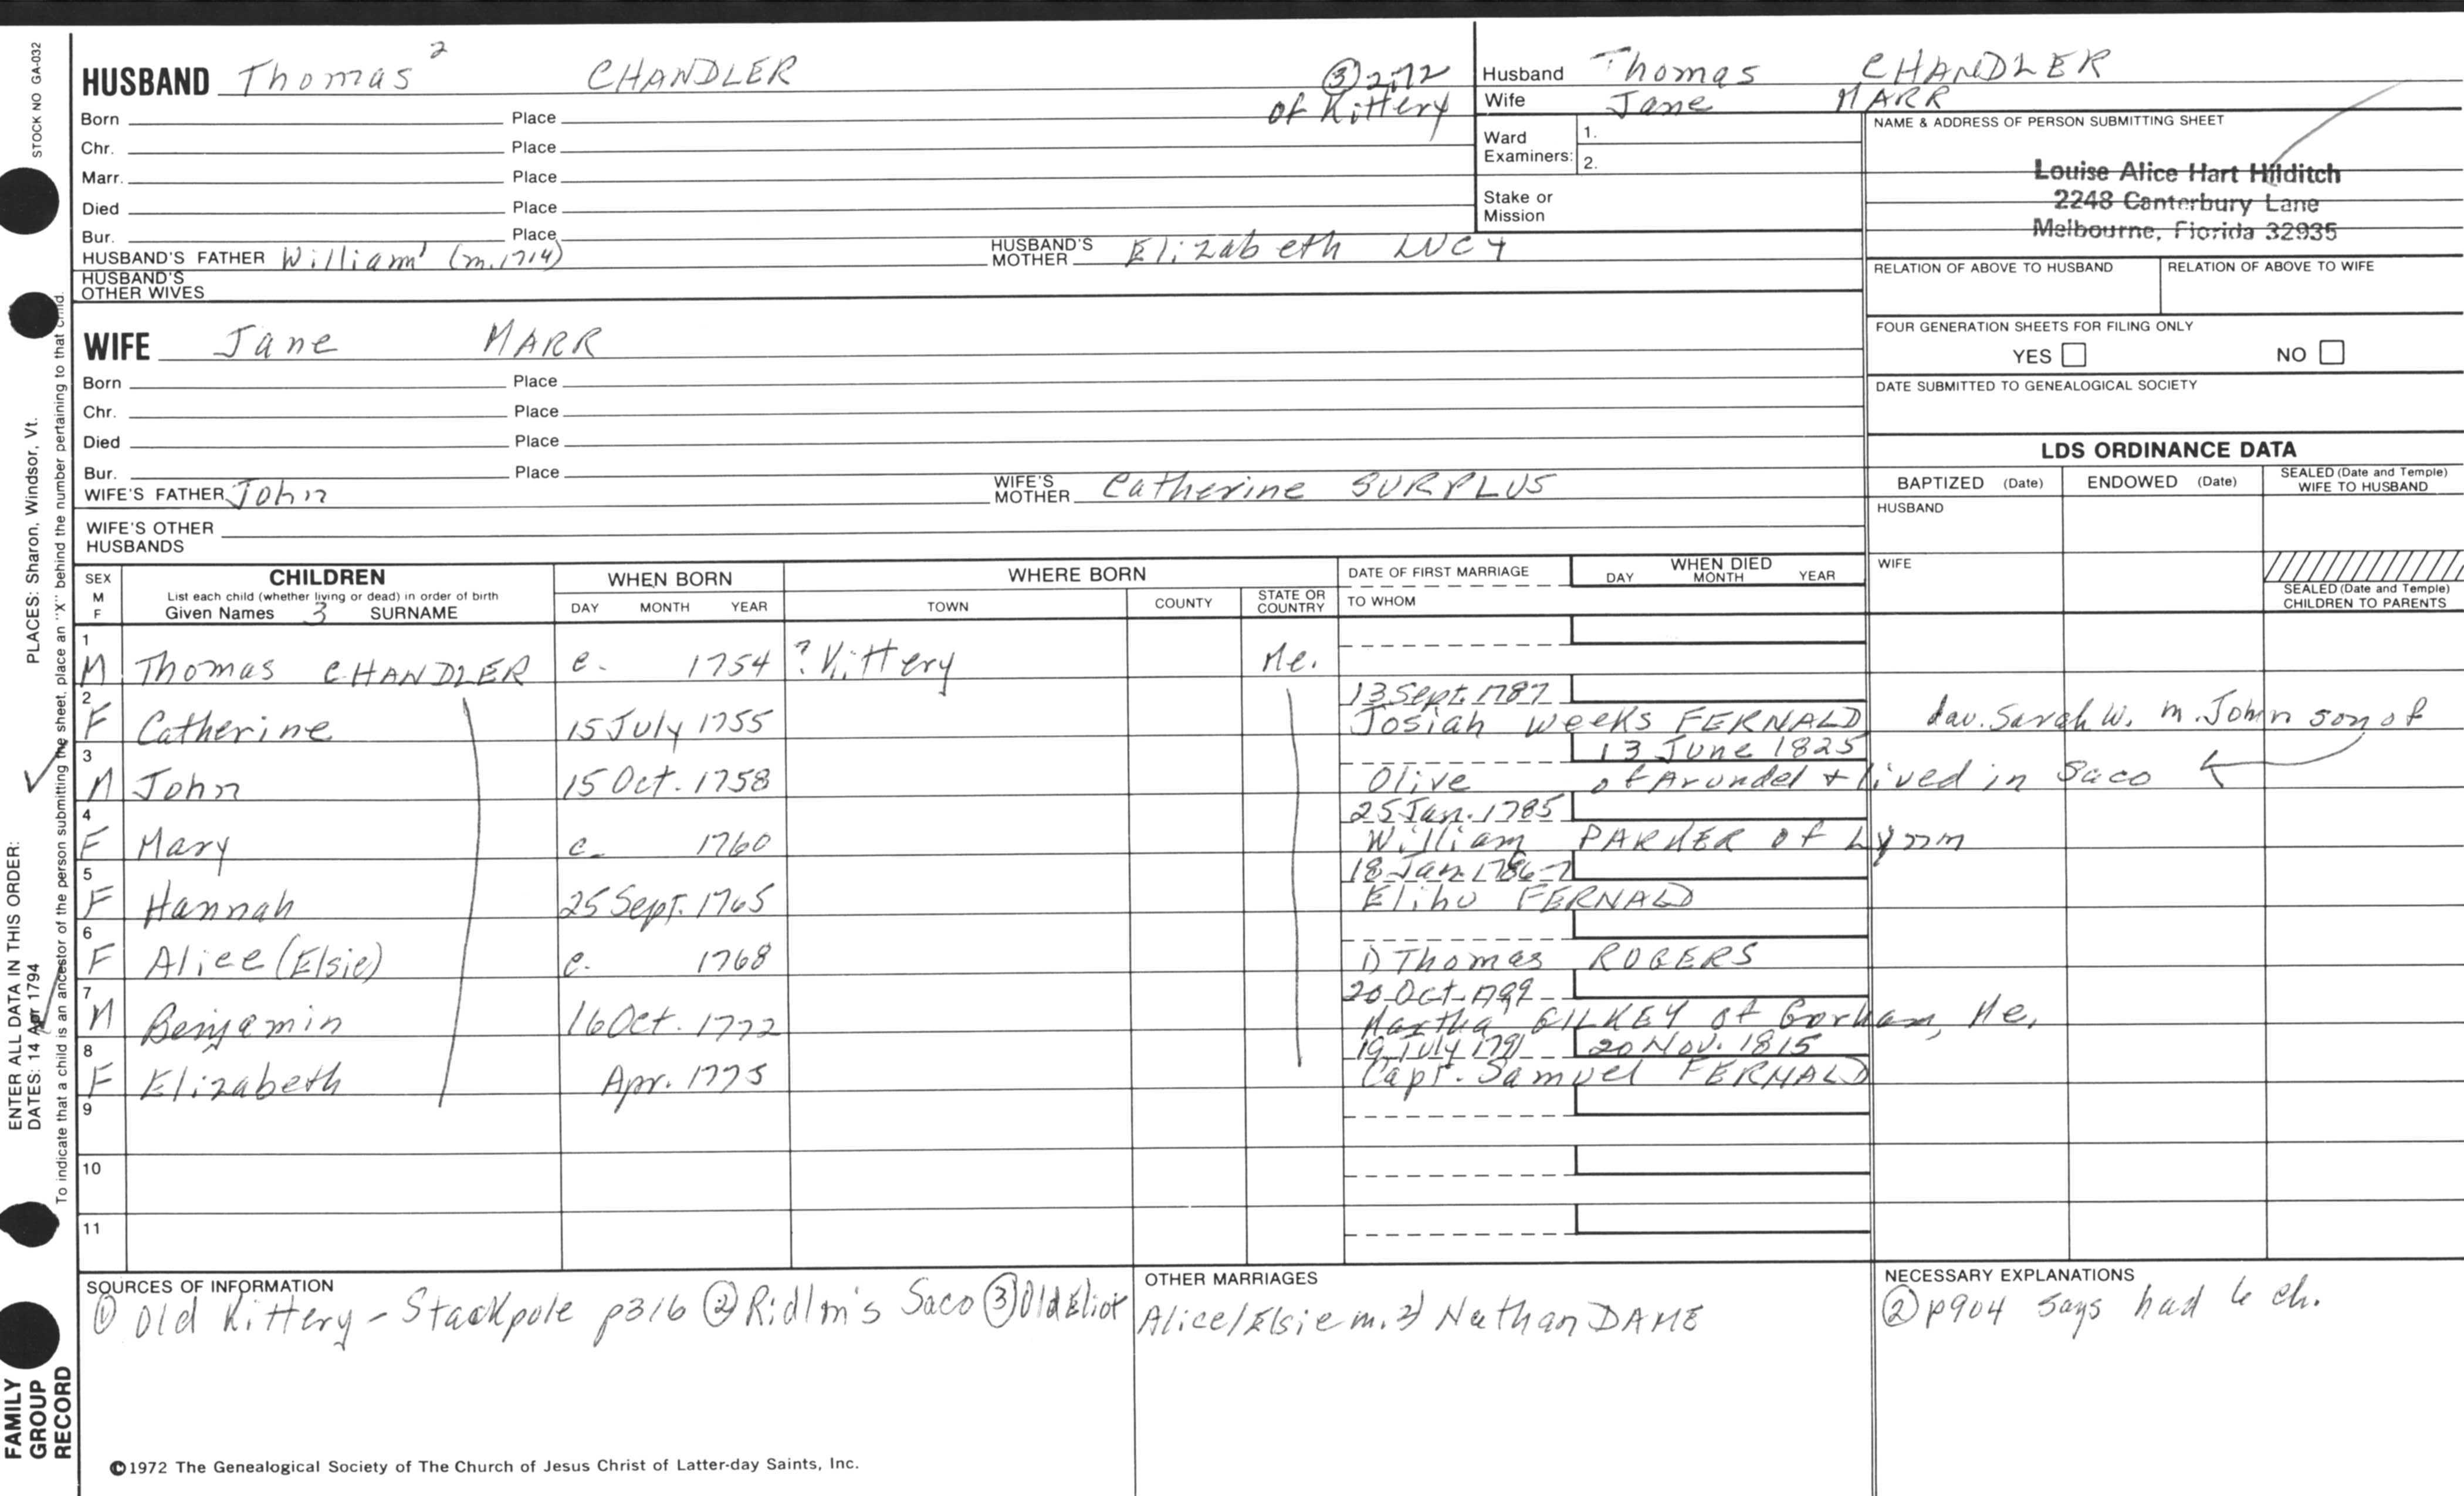 STOCK NO GA-032
HUSBAND Thomas² CHANDLER ③2:72
of Kittery
Born Place
Chr. Place
Marr. Place
Died Place
Bur. Place
HUSBAND'S FATHER William¹ (m.1714) HUSBAND'S MOTHER Elizabeth LUCY
HUSBAND'S OTHER WIVES
WIFE Jane MARR
Born Place
Chr. Place
Died Place
Bur. Place
WIFE'S FATHER John WIFE'S MOTHER Catherine SURPLUS
WIFE'S OTHER HUSBANDS
Husband Thomas CHANDLER
Wife Jane MARR
Ward Examiners: 1.
2.
Stake or Mission
NAME & ADDRESS OF PERSON SUBMITTING SHEET
Louise Alice Hart Hilditch
2248 Canterbury Lane
Melbourne, Florida 32935
RELATION OF ABOVE TO HUSBAND RELATION OF ABOVE TO WIFE
FOUR GENERATION SHEETS FOR FILING ONLY
YES NO
DATE SUBMITTED TO GENEALOGICAL SOCIETY
LDS ORDINANCE DATA
BAPTIZED (Date) ENDOWED (Date) SEALED (Date and Temple) WIFE TO HUSBAND
HUSBAND
WIFE
SEALED (Date and Temple) CHILDREN TO PARENTS
SEX M F
CHILDREN
List each child (whether living or dead) in order of birth
Given Names 3 SURNAME
WHEN BORN
DAY MONTH YEAR
WHERE BORN
TOWN COUNTY STATE OR COUNTRY
DATE OF FIRST MARRIAGE
TO WHOM
WHEN DIED
DAY MONTH YEAR
1
M Thomas CHANDLER c. 1754 ? Kittery Me.
2 13 Sept. 1787
F Catherine 15 July 1755 Josiah Weeks FERNALD dau. Sarah W. m. John son of
3 13 June 1825
M John 15 Oct. 1758 Olive of Arundel + lived in Saco
4 25 Jan. 1785
F Mary c. 1760 William PARKER of Lynn
5 18 Jan. 1786-7
F Hannah 25 Sept. 1765 Elihu FERNALD
6
F Alice (Elsie) c. 1768 1) Thomas ROGERS
7 20 Oct. 1799
M Benjamin 16 Oct. 1772 Martha GILKEY of Gorham, Me.
8 19 July 1791 20 Nov. 1815
F Elizabeth Apr. 1775 Capt. Samuel FERNALD
9
10
11
SOURCES OF INFORMATION
① Old Kittery - Stackpole p316 ② Ridlon's Saco ③ Old Eliot
OTHER MARRIAGES
Alice/Elsie m. 2) Nathan DAME
NECESSARY EXPLANATIONS
② p904 says had 6 ch.
©1972 The Genealogical Society of The Church of Jesus Christ of Latter-day Saints, Inc.
ENTER ALL DATA IN THIS ORDER:
DATES: 14 Apr 1794 PLACES: Sharon, Windsor, Vt.
To indicate that a child is an ancestor of the person submitting the sheet, place an "X" behind the number pertaining to that child.
FAMILY
GROUP
RECORD